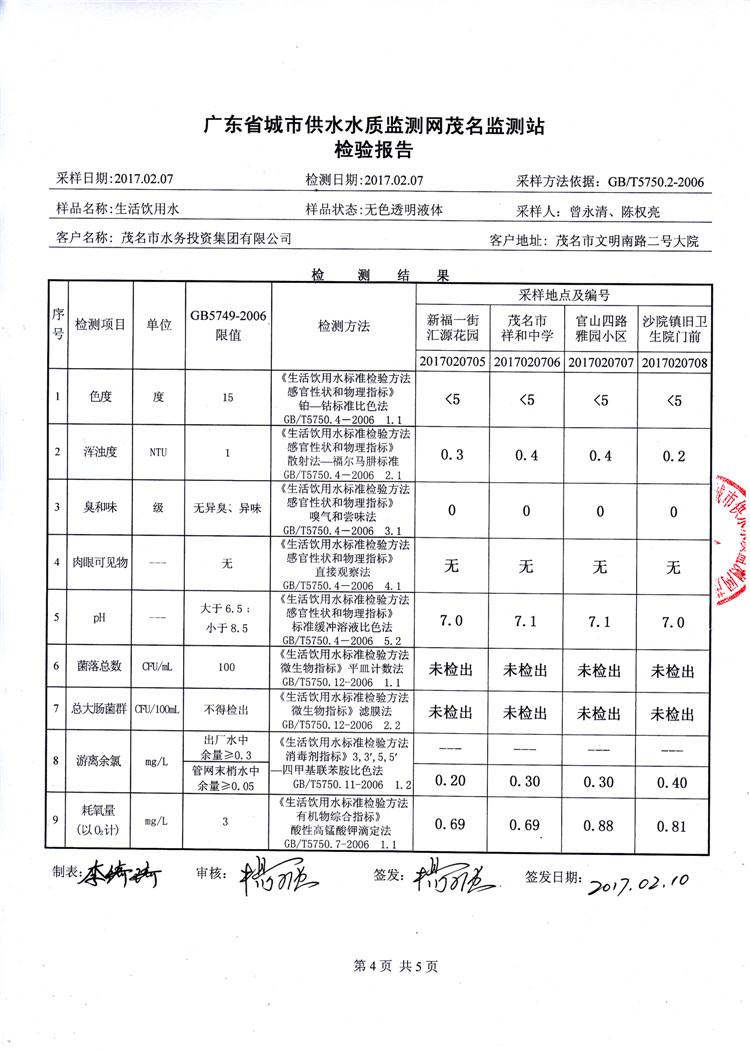 广东省城市供水水质监测网茂名监测站
检验报告
采样日期:2017.02.07 检测日期:2017.02.07 采样方法依据: GB/T5750.2-2006
样品名称:生活饮用水 样品状态:无色透明液体 采样人: 曾永清、陈权亮
客户名称: 茂名市水务投资集团有限公司 客户地址: 茂名市文明南路二号大院
检 测 结 果
序号 检测项目 单位 GB5749-2006 限值 检测方法 采样地点及编号
新福一街 茂名市 官山四路 沙院镇旧卫
汇源花园 祥和中学 雅园小区 生院门前
2017020705 2017020706 2017020707 2017020708
《生活饮用水标准检验方法
感官性状和物理指标》
1 色度 度 15 铂—钴标准比色法 <5 <5 <5 <5
GB/T5750.4-2006 1.1
《生活饮用水标准检验方法
感官性状和物理指标》
2 浑浊度 NTU 1 散射法—福尔马肼标准 0.3 0.4 0.4 0.2
GB/T5750.4-2006 2.1
《生活饮用水标准检验方法
感官性状和物理指标》
3 臭和味 级 无异臭、异味 嗅气和尝味法 0 0 0 0
GB/T5750.4-2006 3.1
《生活饮用水标准检验方法
感官性状和物理指标》
4 肉眼可见物 --- 无 直接观察法 无 无 无 无
GB/T5750.4-2006 4.1
《生活饮用水标准检验方法
大于6.5; 感官性状和物理指标》
5 pH --- 小于8.5 标准缓冲溶液比色法 7.0 7.1 7.1 7.0
GB/T5750.4-2006 5.2
《生活饮用水标准检验方法
6 菌落总数 CFU/mL 100 微生物指标》平皿计数法 未检出 未检出 未检出 未检出
GB/T5750.12-2006 1.1
《生活饮用水标准检验方法
7 总大肠菌群 CFU/100mL 不得检出 微生物指标》滤膜法 未检出 未检出 未检出 未检出
GB/T5750.12-2006 2.2
8 游离余氯 mg/L 出厂水中 余量≥0.3 《生活饮用水标准检验方法 --- --- --- ---
消毒剂指标》3,3′,5,5′
管网末梢水中 余量≥0.05 —四甲基联苯胺比色法 0.20 0.30 0.30 0.40
GB/T5750.11-2006 1.2
《生活饮用水标准检验方法
耗氧量 有机物综合指标》
9 (以O₂计) mg/L 3 酸性高锰酸钾滴定法 0.69 0.69 0.88 0.81
GB/T5750.7-2006 1.1
制表: 审核: 签发: 签发日期: 2017.02.10
第4页 共5页